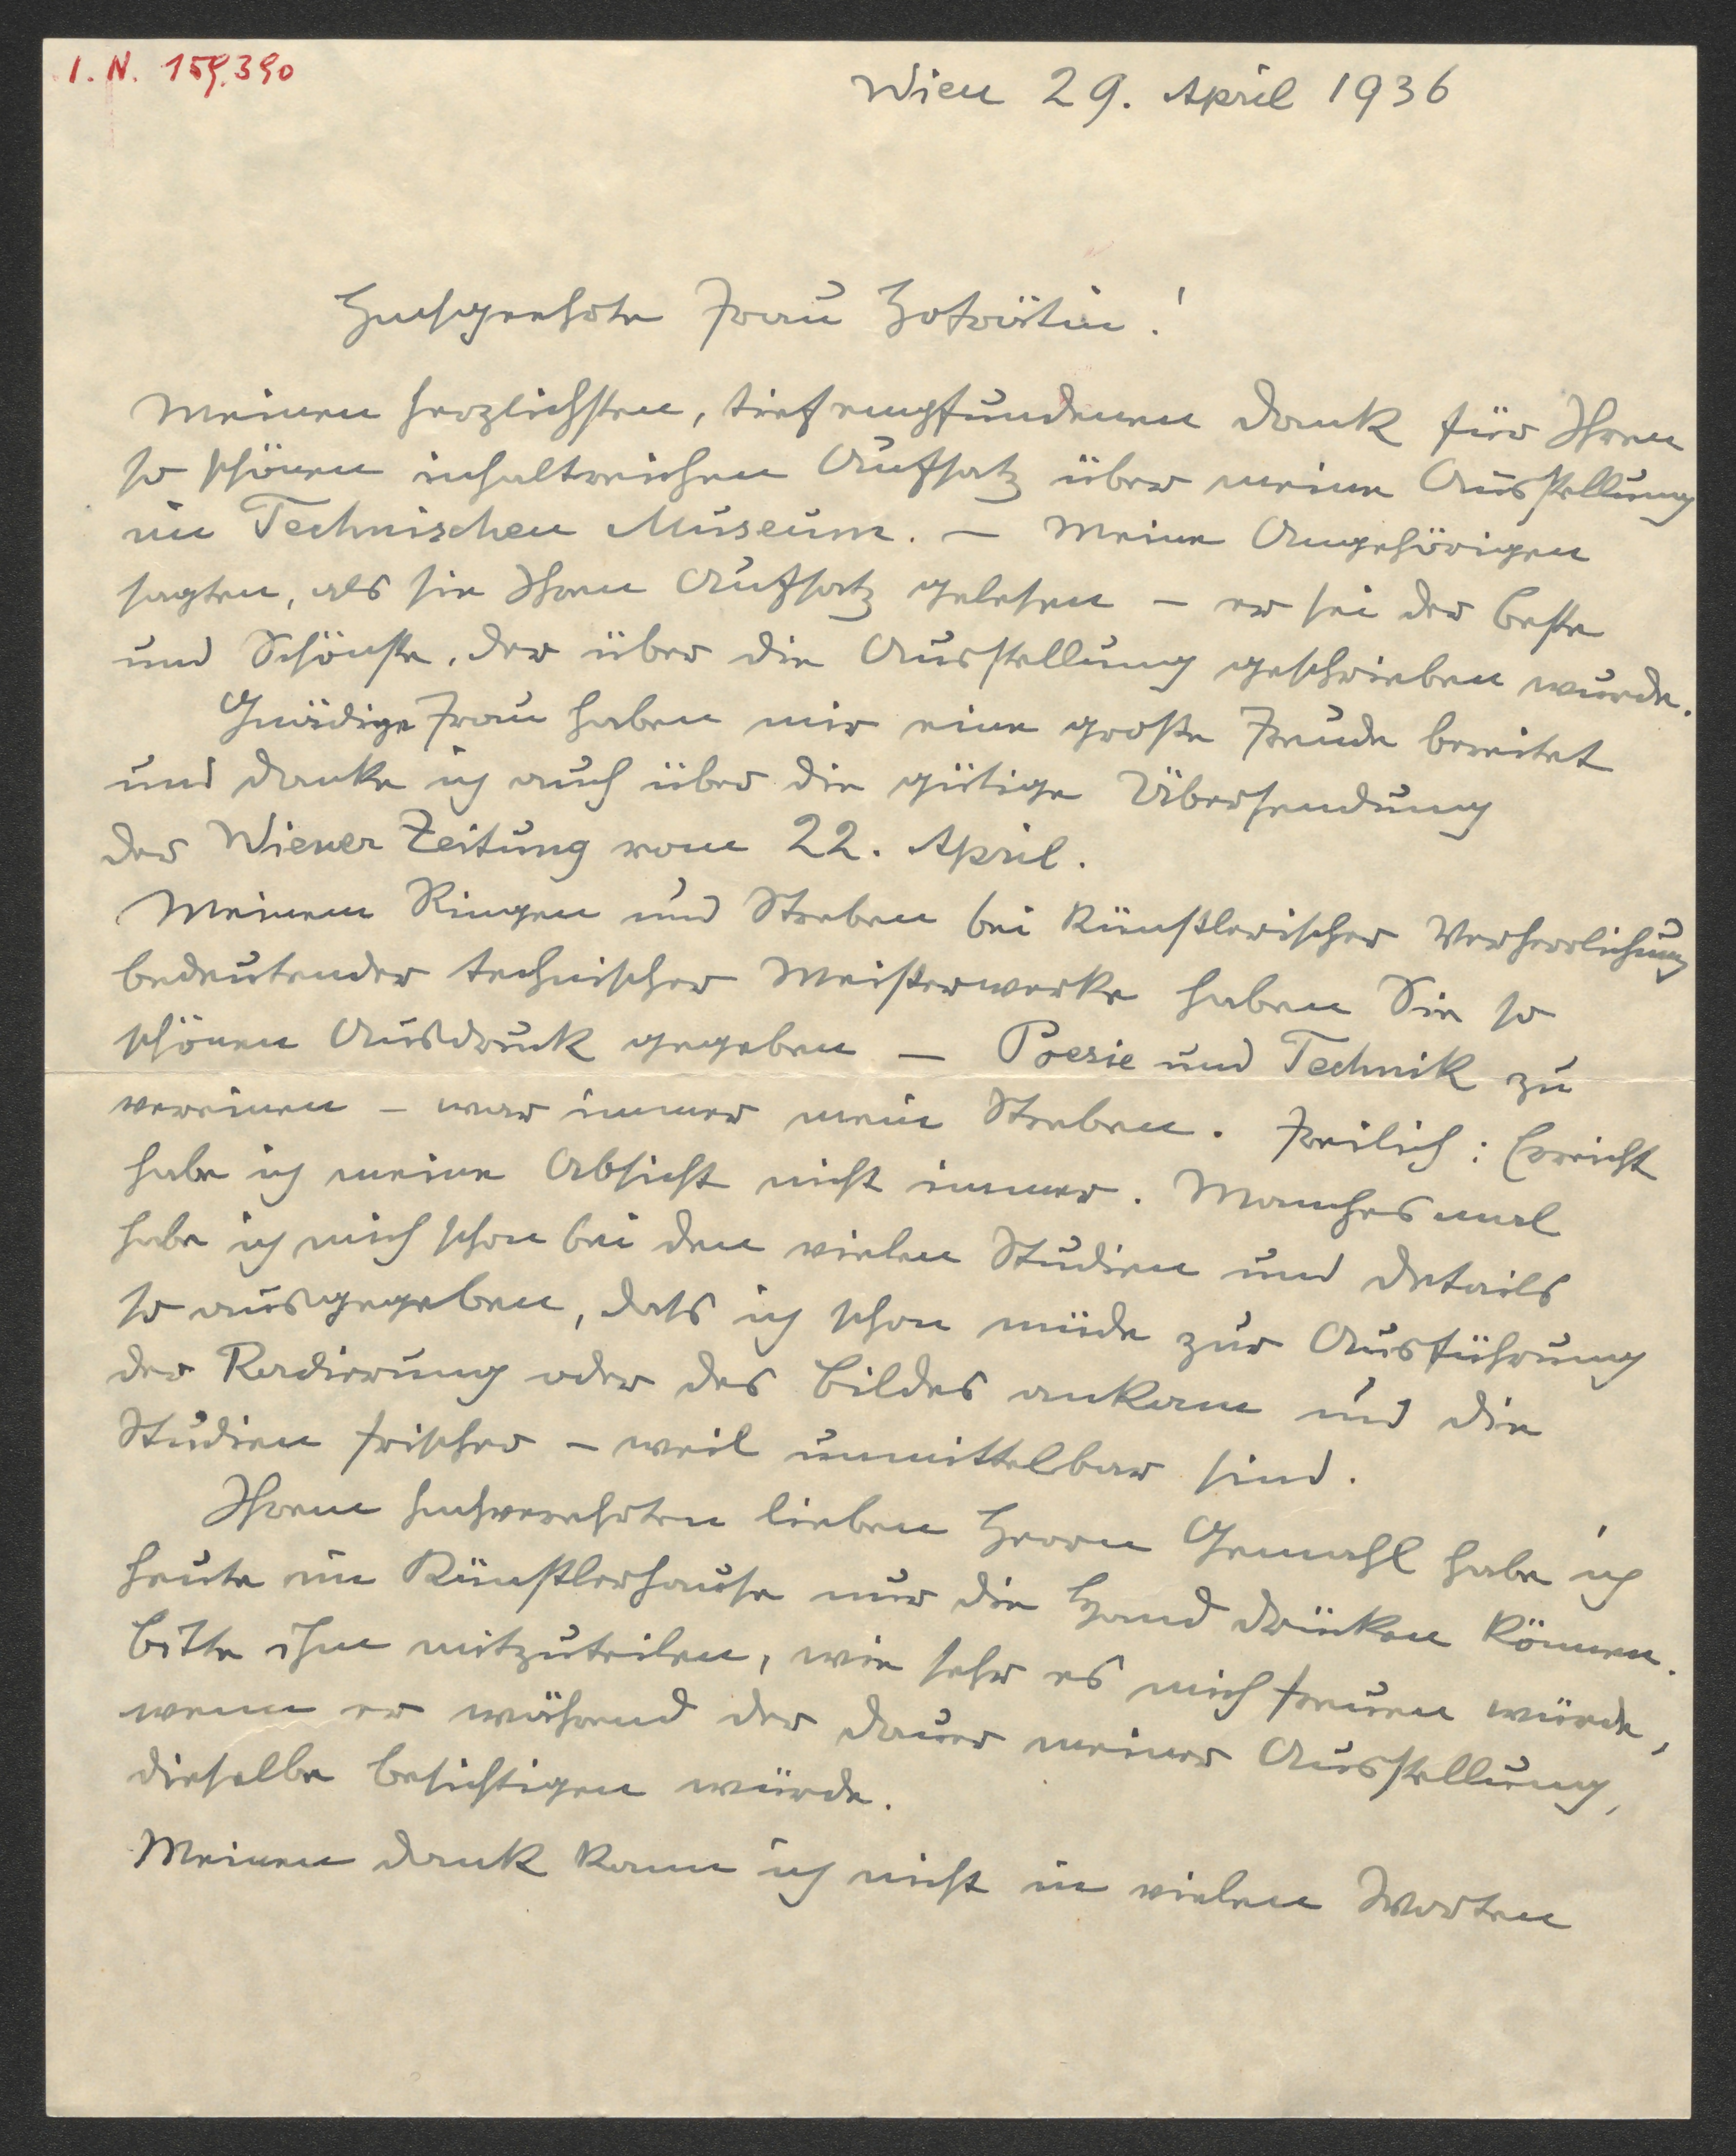 I. N. 159.390
Wien 29. April 1936
Hochgeehrte Frau Hofrätin!
Meinen herzlichsten, tiefempfundenen Dank für Ihren
so schönen inhaltreichen Aufsatz über meine Ausstellung
im Technischen Museum. – Meine Angehörigen
sagten, als sie Ihren Aufsatz gelesen – er sei der beste
und Schönste, der über die Ausstellung geschrieben wurde.
Gnädige Frau haben mir eine große Freude bereitet
und danke ich auch über die gütige Übersendung
der Wiener Zeitung vom 22. April.
Meinem Ringen und Streben bei künstlerischer Verherrlichung
bedeutender technischer Meisterwerke haben Sie so
schönen Ausdruck gegeben – Poesie und Technik zu
vereinen – war immer mein Streben. Freilich: Erreicht
habe ich meine Absicht nicht immer. Manchesmal
habe ich mich schon bei den vielen Studien und Details
so ausgegeben, dass ich schon müde zur Ausführung
der Radierung oder des Bildes ankam und die
Studien frischer – weil unmittelbar sind.
Ihrem hochverehrten lieben Herrn Gemahl habe ich
heute im Künstlerhause nur die Hand drücken können.
Bitte ihm mitzuteilen, wie sehr es mich freuen würde,
wenn er während der Dauer meiner Ausstellung,
dieselbe besichtigen würde.
Meinen Dank kann ich nicht in vielen Worten